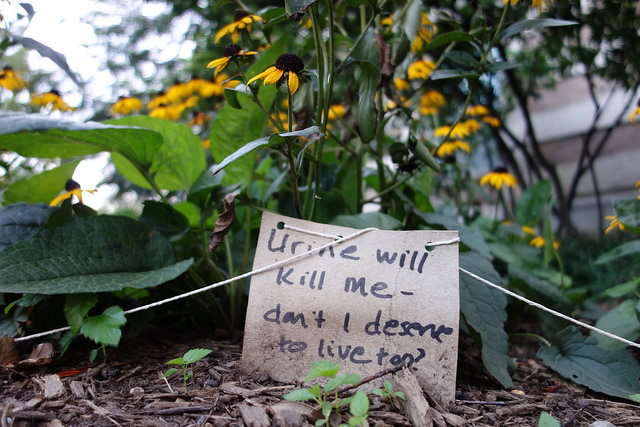 Urine will
kill me -
don't I deserve
to live too?